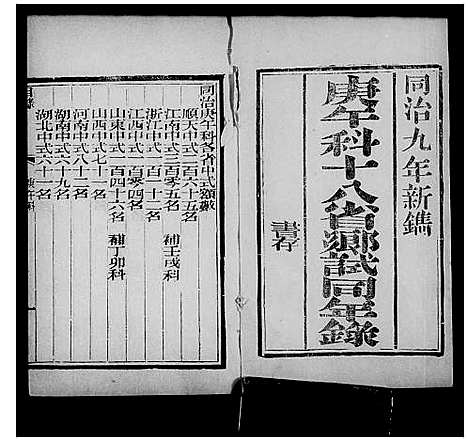 同治九年新鐫
庚午科十八省鄉試同年錄
書存
同治庚午科各省中式額數
順天中式二百六十五名
江南中式三百零五名 補壬戌科
浙江中式一百十二名
江西中式一百零四名
山東中式一百四十六名 補丁卯科
山西中式七十一名
河南中式八十八名
湖南中式六十九名
湖北中式六十一名
目錄